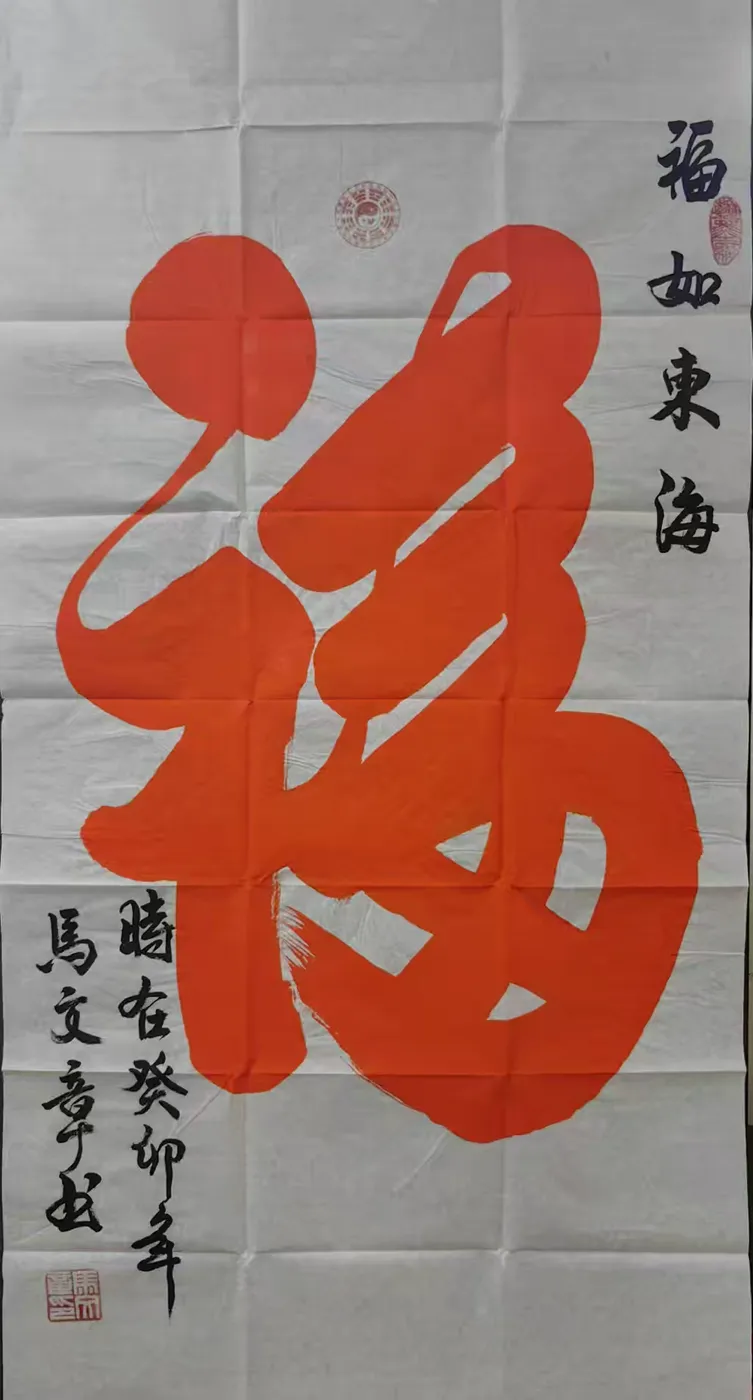 福如東海
福
時在癸卯年
馬文章书